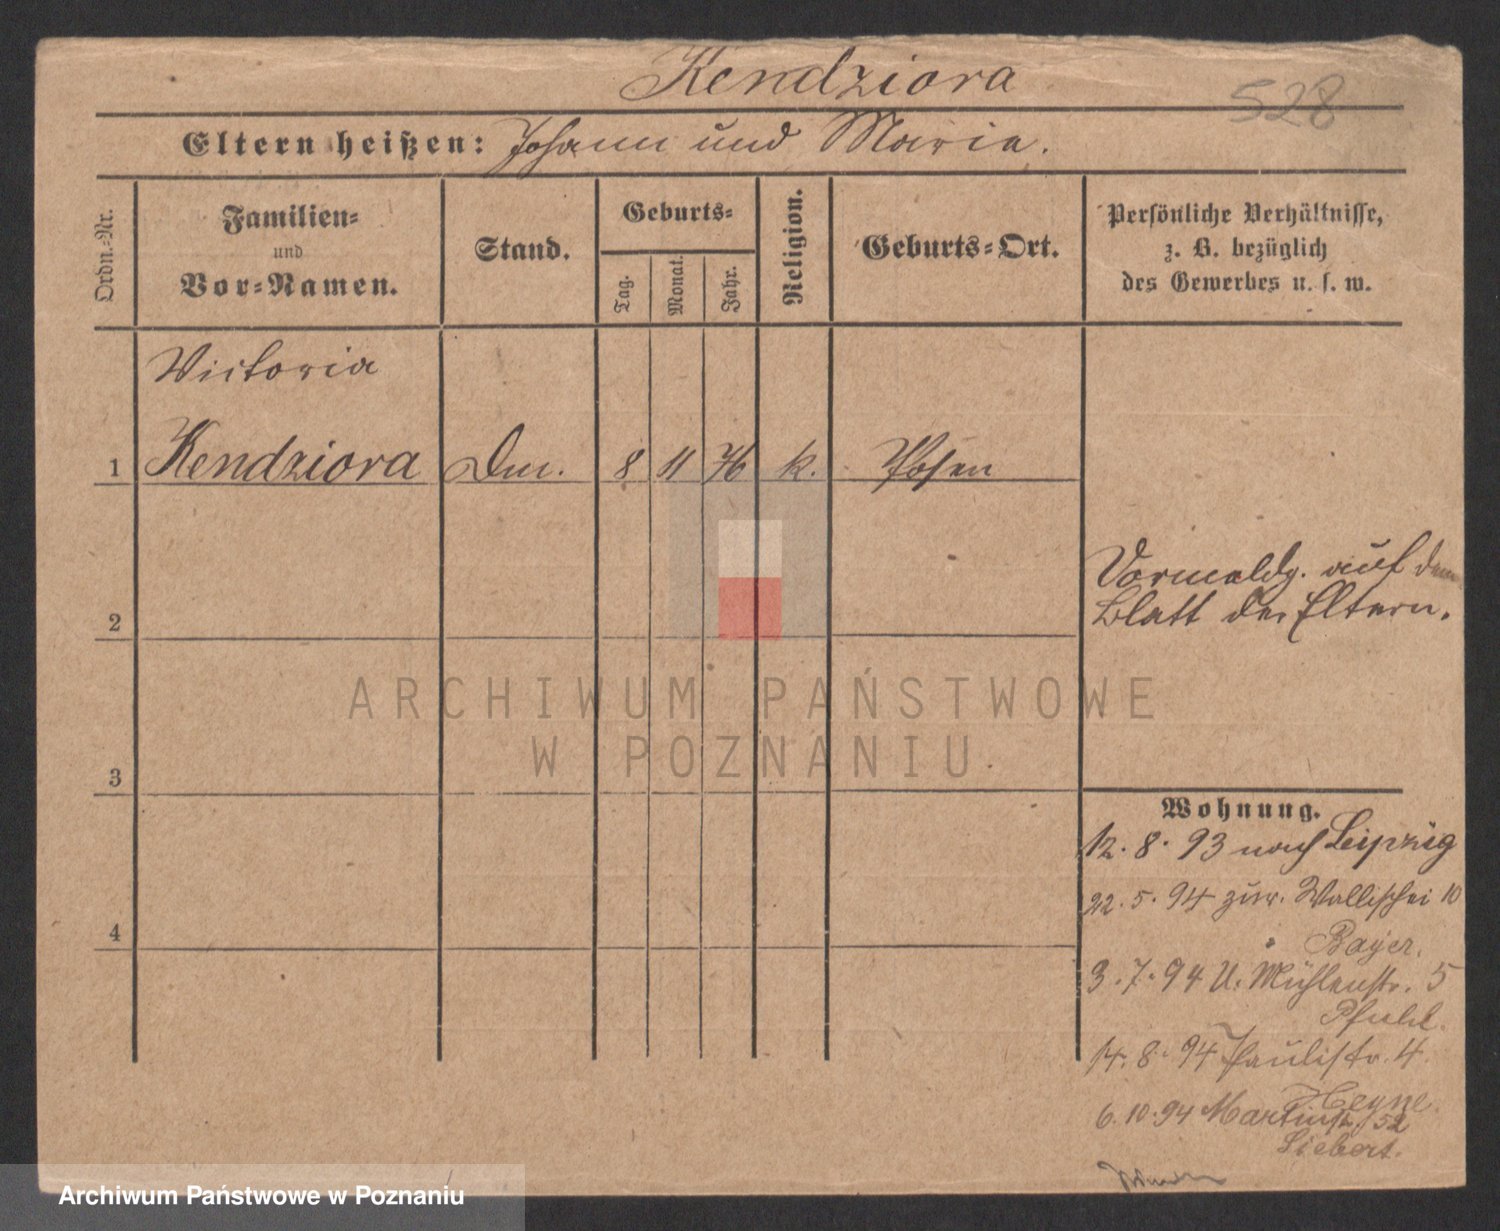 Kendziora
528
Eltern heißen: Johann und Marie.
Ordn.-Nr.
Familien-
und
Vor-Namen.
Stand.
Geburts-
Tag.
Monat.
Jahr.
Religion.
Geburts-Ort.
Persönliche Verhältnisse,
z. B. bezüglich
des Gewerbes u. s. w.
Victoria
1 Kendziora Dm. 8 11 76 k. Posen
2
3
4
Vormeldg. auf dem
Blatt der Eltern.
Wohnung.
12. 8. 93 nach Leipzig
22. 5. 94 zur. Wallischei 10
Bayer.
3. 7. 94 U. Mühlenstr. 5
Pfuhl.
14. 8. 94 Paulistr. 4.
Heyne
6. 10. 94 Martinstr. 52
Siebert.
ARCHIWUM PAŃSTWOWE
W POZNANIU
Archiwum Państwowe w Poznaniu